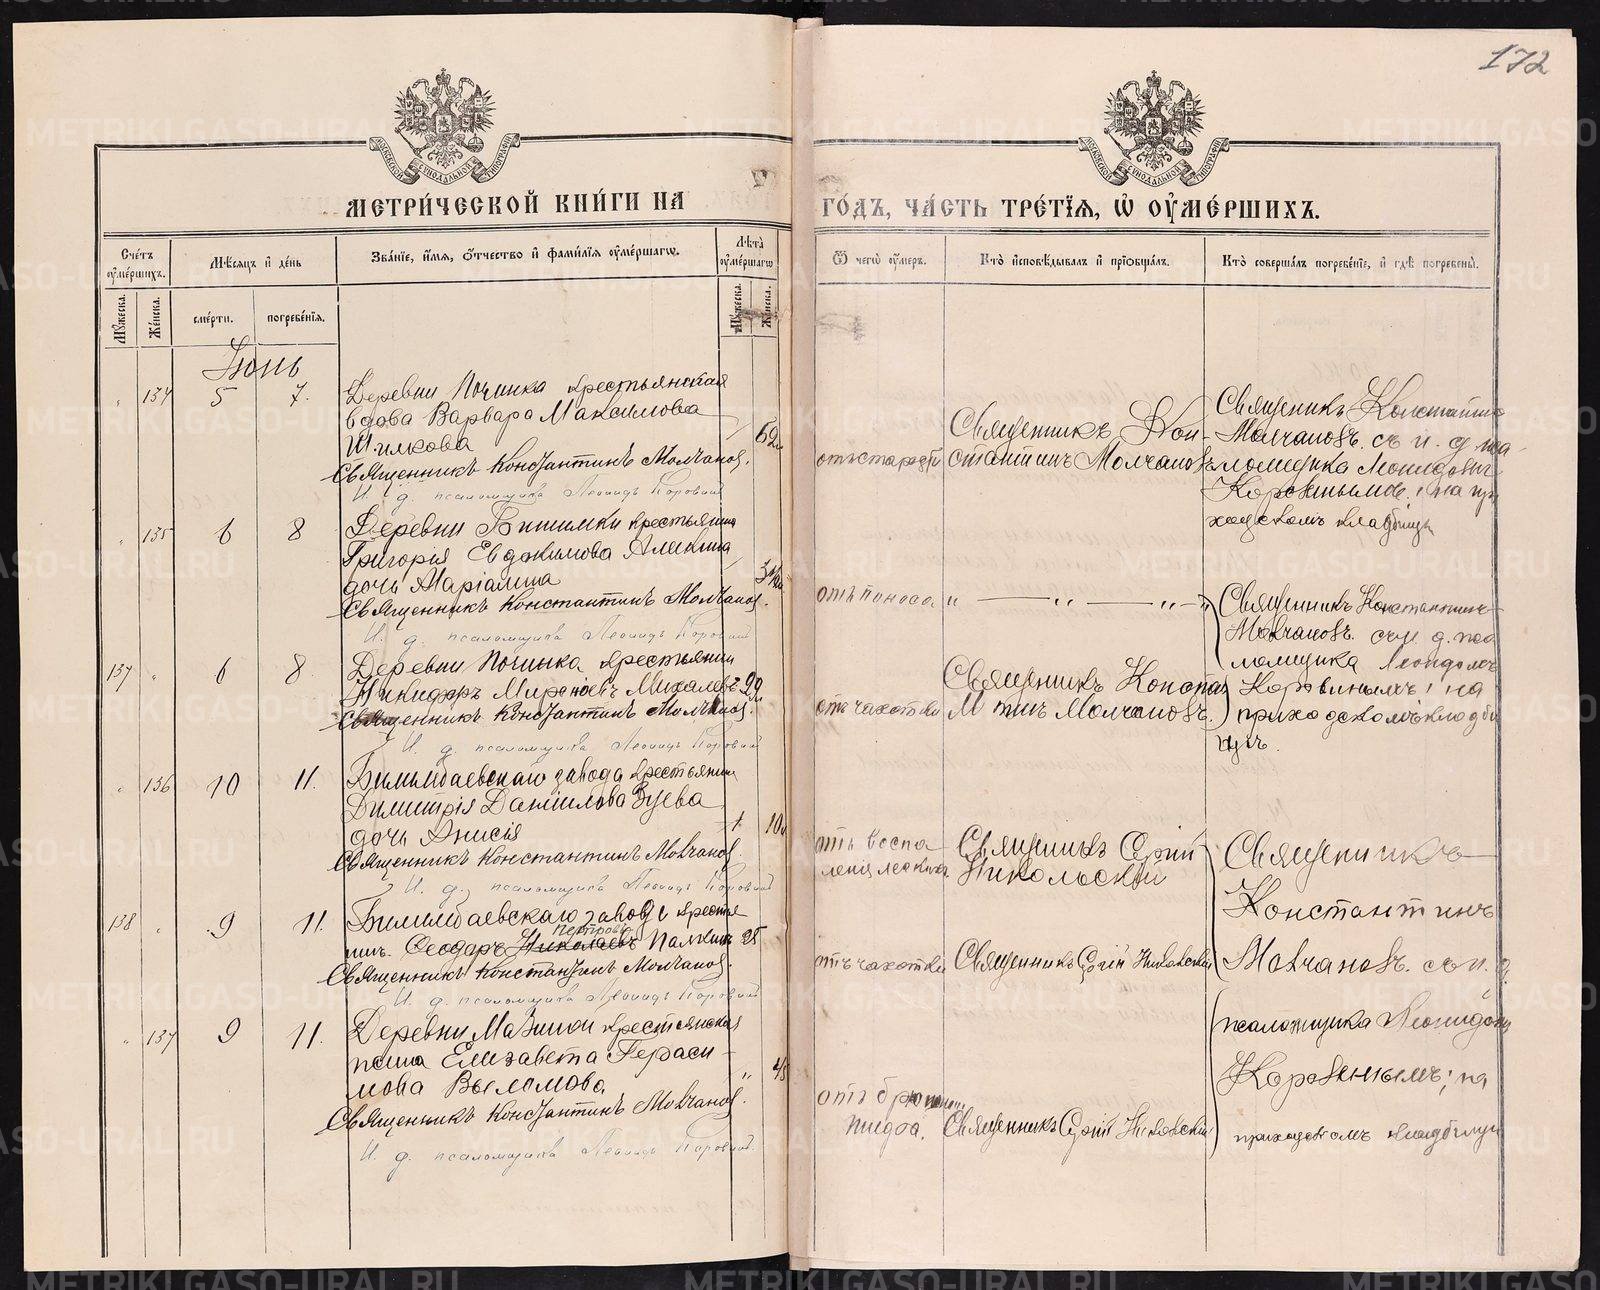 172
МЕТРИ́ЧЕСКОЙ КНИ́ГИ НА
ГО́ДЪ, ЧА́СТЬ ТРЕ́ТЇѦ, Ѡ҆ ОУ҆МЕ́РШИХЪ.
Сче́тъ оу҆ме́ршихъ.
Мѣ́сяцъ и҆ де́нь
Зва́нїе, и҆́мѧ, ѻ҆́тчество и҆ фами́лїѧ оу҆ме́ршагѡ.
Лѣ́та̀ оу҆ме́ршагѡ
Ѿ чегѡ̀ оу҆́меръ.
Кто̀ и҆сповѣ́дывалъ и҆ прїѡбща́лъ.
Кто̀ соверша́лъ погребе́нїе, и҆ гдѣ̀ погребены̀.
Мꙋ́жеска.
Же́нска.
сме́рти.
погребе́нїѧ.
Мꙋ́жеска.
Же́нска.
Іюнь
134 5 7.
Деревни Починка крестьянская
вдова Варвара Максимова
Шилкова
62
Священникъ Константинъ Молчановъ.
И. д. псаломщика Леонидъ Коровинъ
отъ старости
Священникъ Кон-
стантинъ Молчановъ
Священникъ Константинъ
Молчановъ съ и. д. пса-
ломщика Леонидомъ
Коровинымъ, на при
ходскомъ кладбищѣ
135 6 8
Деревни крестьянина
Григорія Евдокимова
дочь Маріамна
Священникъ Константинъ Молчановъ.
И. д. псаломщика Леонидъ Коровинъ
отъ поноса.
" — " — " — "
Священникъ Константинъ
Молчановъ съ и. д. пса
ломщика Леонидомъ
Коровинымъ, на
приходскомъ кладби
щѣ.
137 " 6 8
Деревни Починка крестьянин
Никифоръ Мироновъ Михалевъ 29
Священникъ Константинъ Молчановъ.
И. д. псаломщика Леонидъ Коровинъ
отъ чахотки
Священникъ Конста
тинъ Молчановъ.
" 136 10 11.
Билимбаевскаго завода крестьянин
Димитрія Даніилова Зуева
дочь Анисія
10
Священникъ Константинъ Молчановъ
И. д. псаломщика Леонидъ Коровинъ
отъ воспа
ленія легкихъ.
Священникъ Сергій
Никольскій
Священникъ
Константинъ
Молчановъ. съ и. д.
псаломщика Леонидомъ
Коровинымъ, на
приходскомъ кладбищѣ
138 " 9 11.
Билимбаевскаго завода кресть
нинъ. Ѳеодоръ Николаевъ Петровъ Палкинъ 25
Священникъ Константинъ Молчановъ.
И. д. псаломщика Леонидъ Коровинъ
отъ чахотки
Священникъ Сергій Никольскій
" 137 9 11.
Деревни Мазиной крестьянская
жена Елизавета Гераси-
мова
" 45
Священникъ Константинъ Молчановъ.
И. д. псаломщика Леонидъ Коровинъ
отъ
тифа.
Священникъ Сергій Никольскій